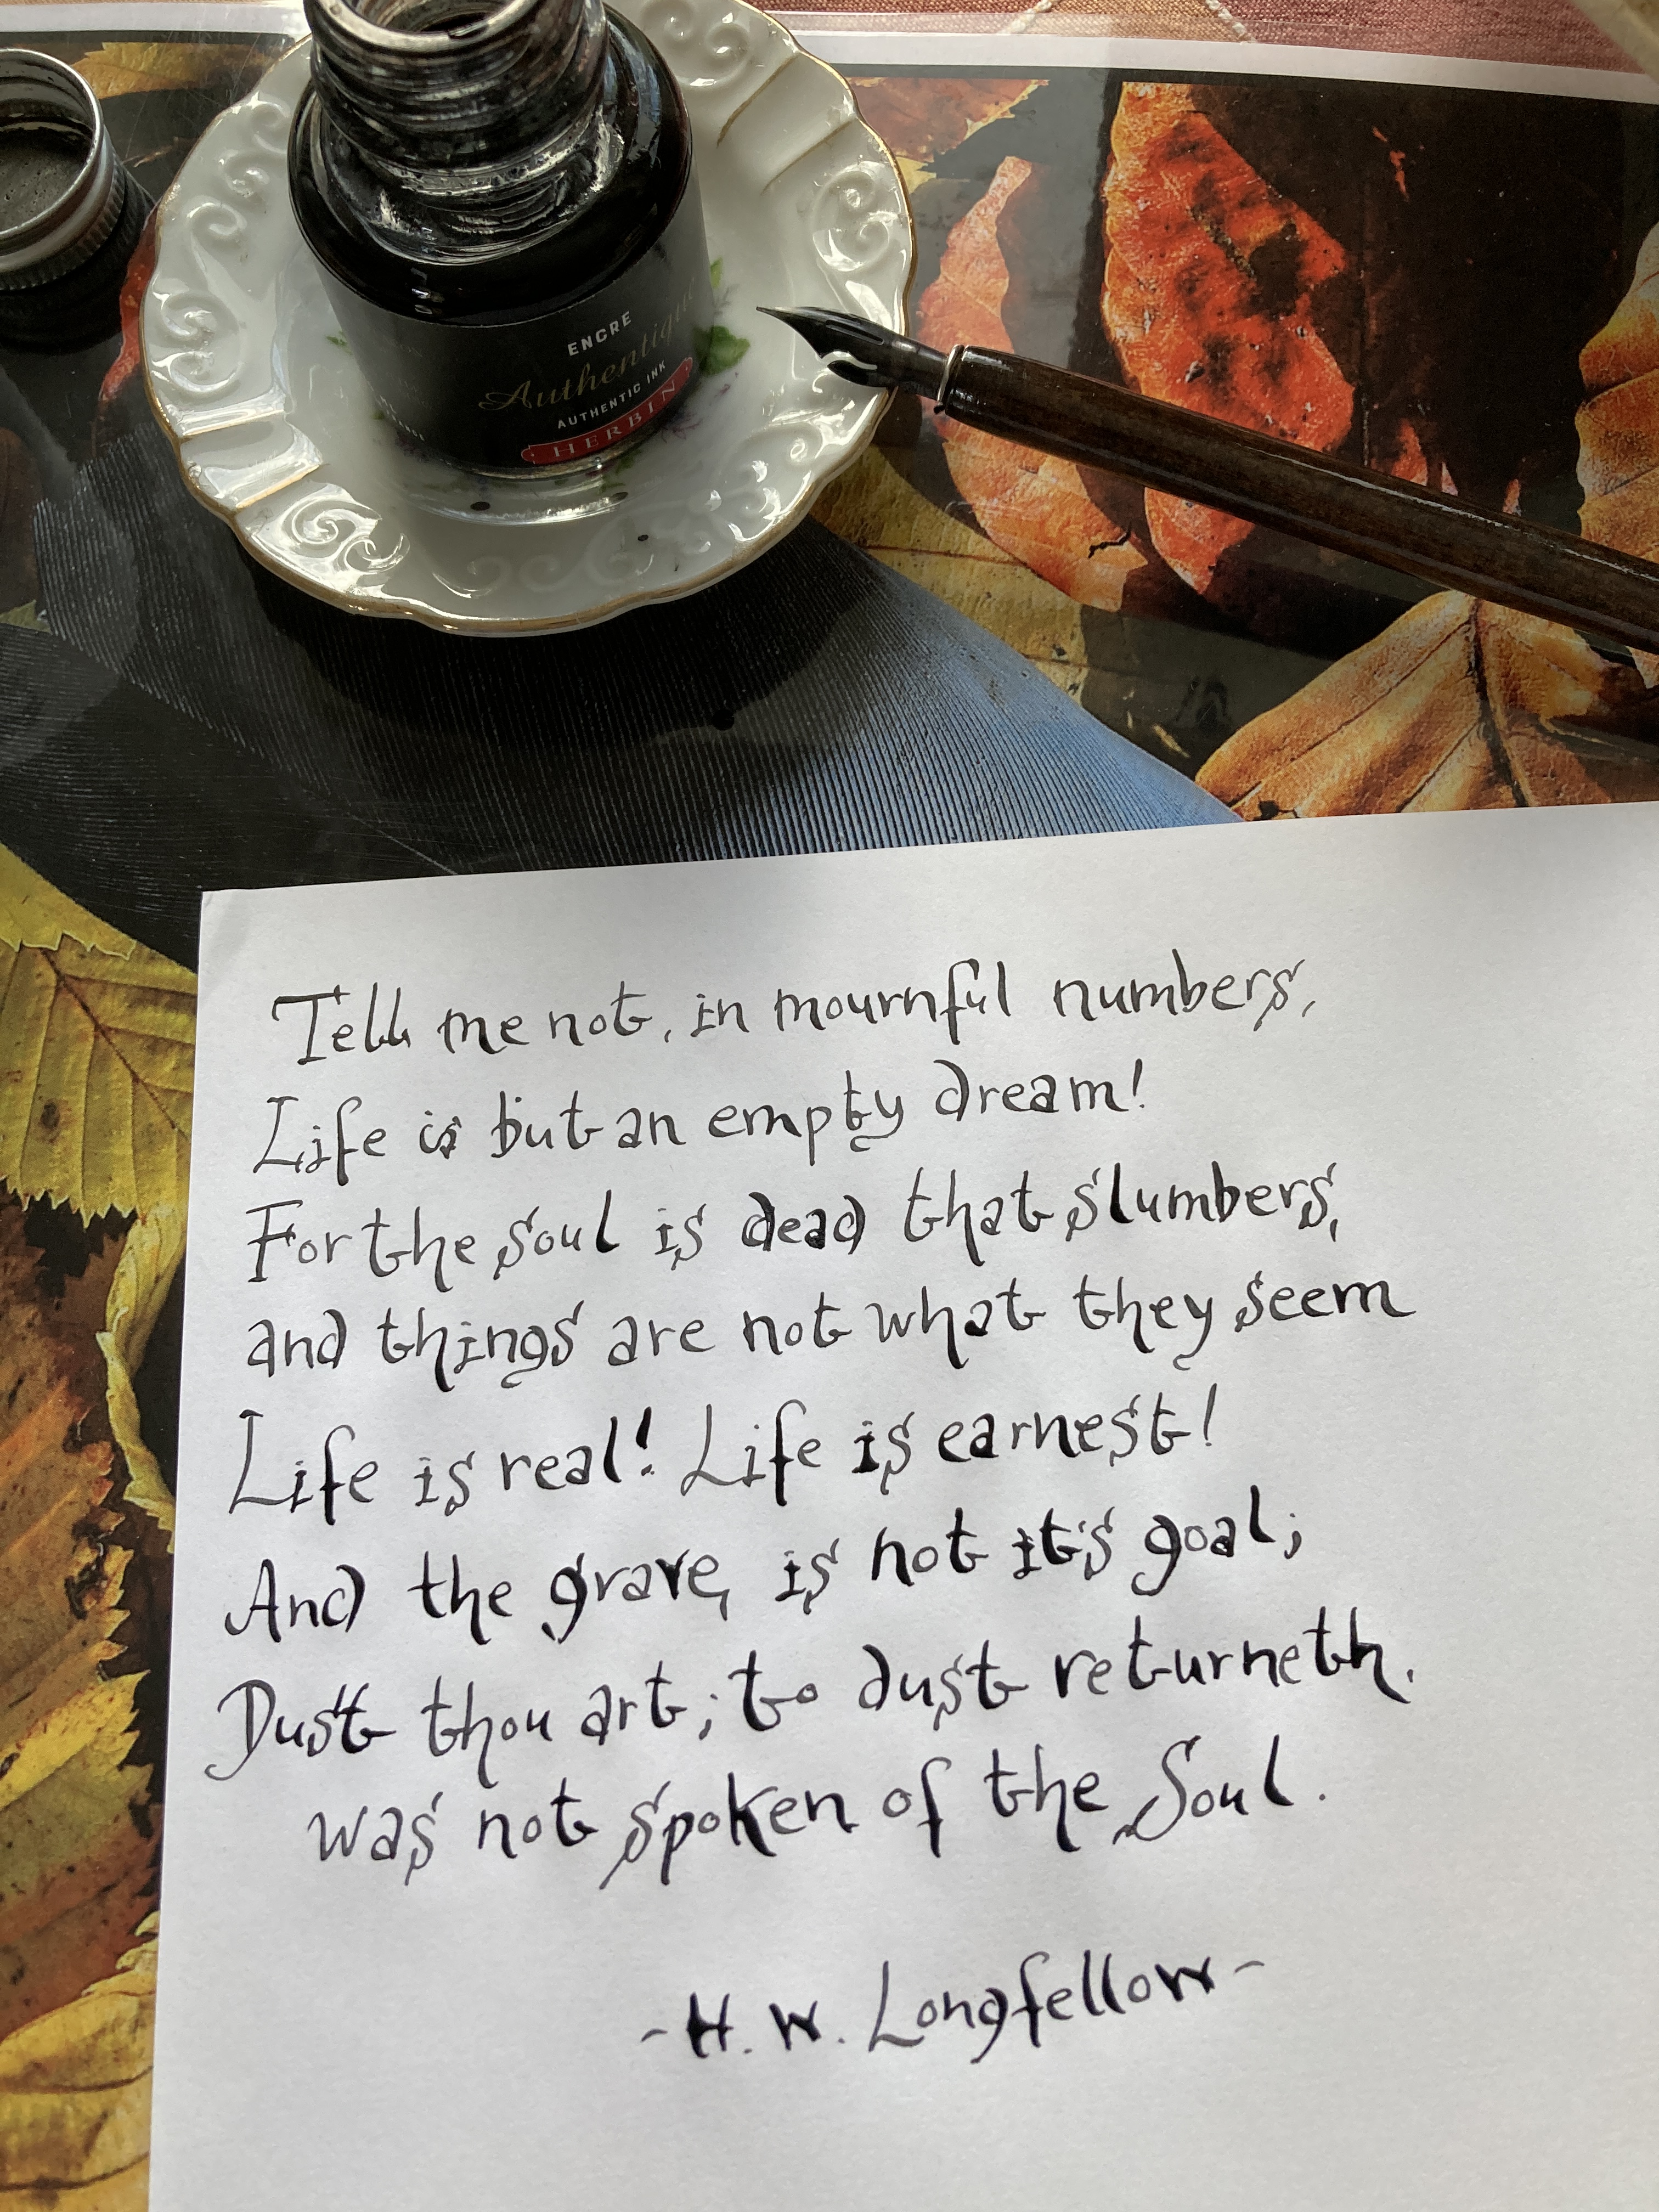 ENCRE
Authentique
AUTHENTIC INK
HERBIN
Tell me not, in mournful numbers,
Life is but an empty dream!
For the soul is dead that slumbers,
and things are not what they seem
Life is real! Life is earnest!
And the grave, is not it's goal;
Dust thou art; to dust returneth.
was not spoken of the Soul.
-H. W. Longfellow-